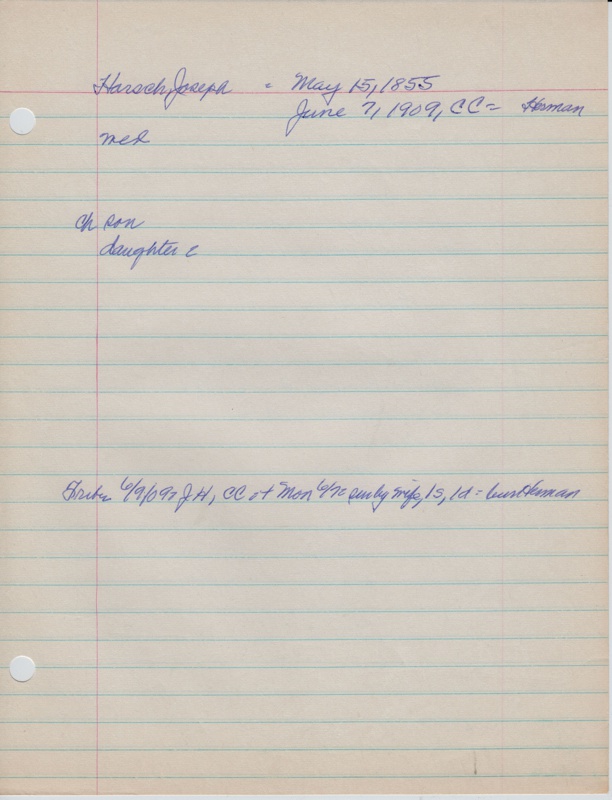 Harsch, Joseph = May 15, 1855
June 7, 1909, CC = Herman
med
ch son
daughter c
Tribu 6/9/09 = J H, CC Mon 6/7 = sur by wife, 1s, 1d = bur Herman